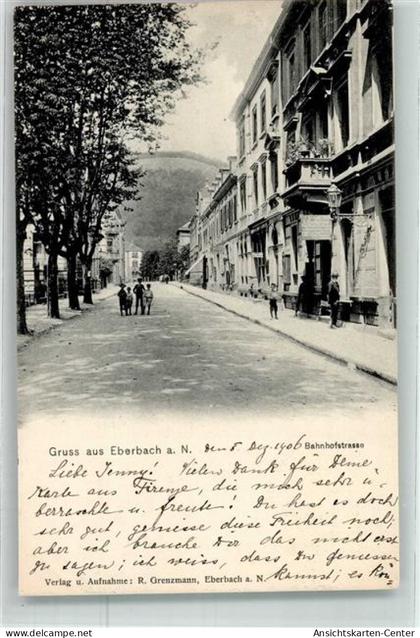 Gruss aus Eberbach a. N. den 5 Dez. 1906 Bahnhofstrasse
Liebe Jenny! Vielen Dank für Deine
Karte aus Firenze, die mich sehr ü
berraschte u. freute! Du hast es doch
sehr gut, geniesse diese Freiheit noch,
aber ich brauche Dir das nicht erst
zu sagen; ich weiss, dass Du geniessen
kannst; es
Verlag u. Aufnahme: R. Grenzmann, Eberbach a. N.
Ansichtskarten-Center
https://www.ansichtskarten-center.de/